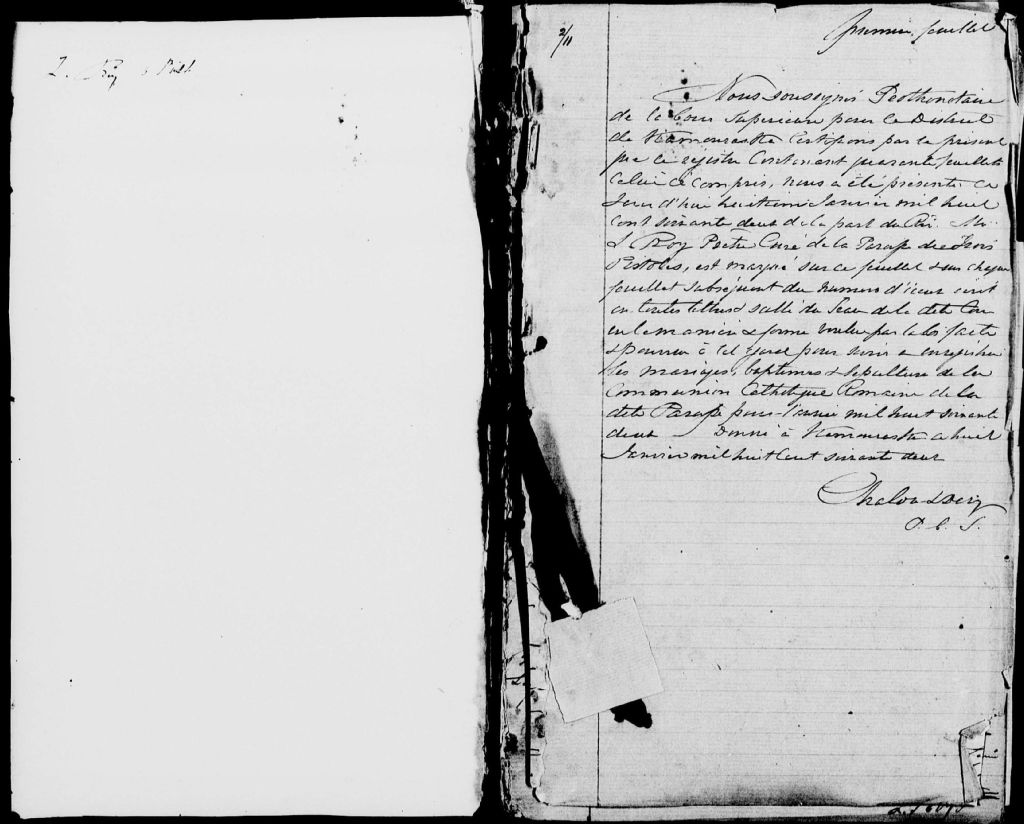 L. Roy
2/11
premier feuillet
Nous soussigné Prothonotaire
de la Cour Supérieure pour le District
de Kamouraska Certifions par le présent
que ce régistre Contenant quarante feuillets
Celui ci compris, nous a été présenté ce
Jour d'hui huitieme Janvier mil huit
cent soixante deux de la part du Rév. Mr
L Roy Prêtre Curé de la Parsse des Trois
Pistoles, est marqué sur ce feuillet & sur chaque
feuillet subséquent du numero d'iceux écrit
en toutes lettres & scellé du Sceau de la dite Cour
en la maniere & forme voulue par la loi faite
& pourvue à cet égard pour servir a enregistrer
les mariages, baptemes & sépulture de la
Communion Catholique Romaine de la
dite Parsse pour l'année mil huit soixante
deux Donné à Kamouraska ce huit
Janvier mil huit Cent soixante deux
P. C. S.